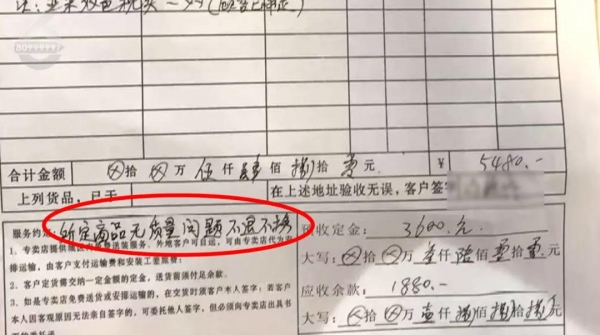 注:
合计金额 ⊗拾⊗万伍仟肆佰捌拾零元 ¥ 5480.-
上列货品,已于 在上述地址验收无误,客户签字
服务约定:所定商品无质量问题不退不换
预收定金: 3600.元
1、专卖店提供
大写:⊗拾⊗万叁仟陆佰零拾零元
排运输,由客户支付运输费和安装工差旅费;
2、客户定货需交纳一定金额的定金,送货前须付足余款。
应收余款: 1880.-
3、如是专卖店免费送货或安排运输的,在交货时须客户本人签字;若客户
本人因客观原因无法亲自签字的,可委托他人签字,但必须向专卖店出具书
大写:⊗拾⊗万壹仟捌佰捌拾零元